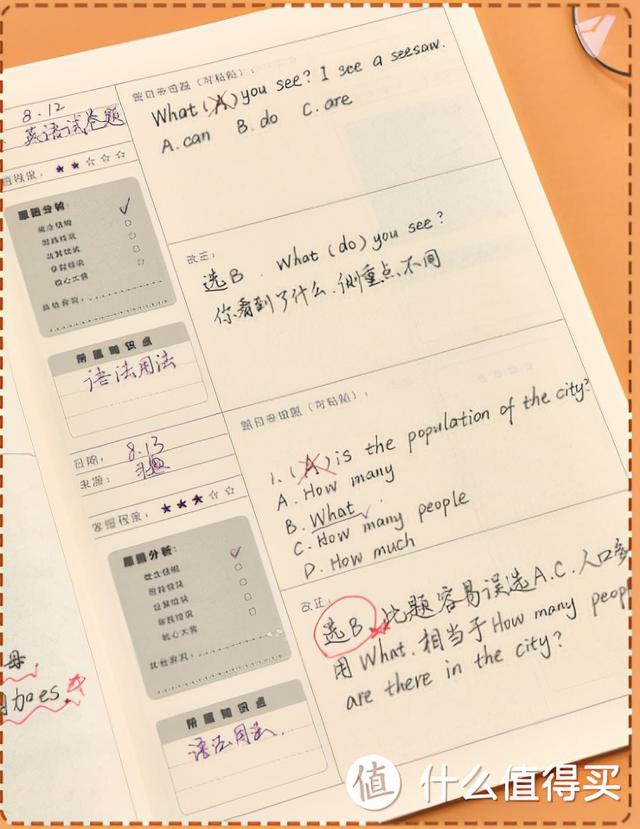 8.12
英语试卷题
题目多用题(可粘贴):
What (A) you see? I see a seesaw.
A. can B. do C. are
掌握程度: ★★☆☆☆
原因分析:
概念模糊
思路错误
运算错误
审题错误
粗心大意
其他原因:
改正:
选B. What (do) you see?
你看到了什么,侧重点不同
所属知识点
语法用法
日期: 8.13
来源:
题目多用题(可粘贴):
1. (A) is the population of the city?
A. How many
B. What
C. How many people
D. How much
掌握程度: ★★★☆☆
原因分析:
概念模糊
思路错误
运算错误
审题错误
粗心大意
其他原因:
改正:
选B. 此题容易误选A.C. 人口多
用What. 相当于How many peop
are there in the city?
所属知识点
语法用法.
加es.
值 什么值得买